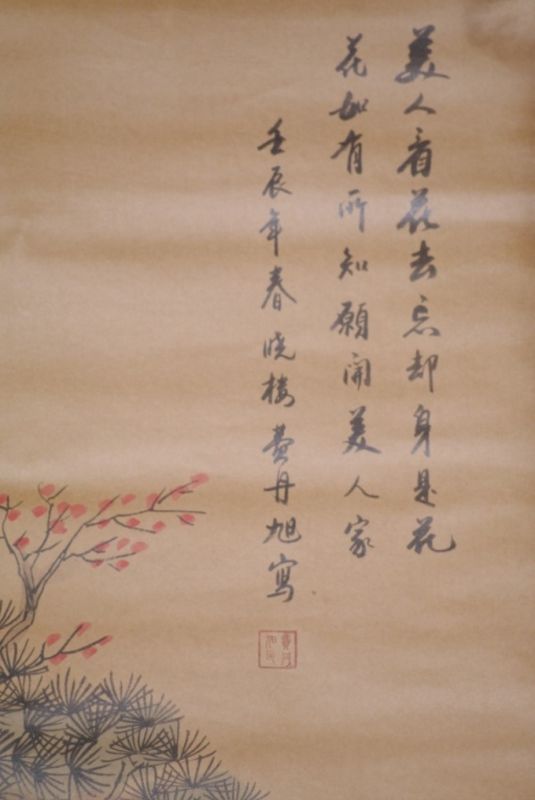 美人看花去忘却身是花
花如有所知願開美人家
壬辰年春晓楼費丹旭寫